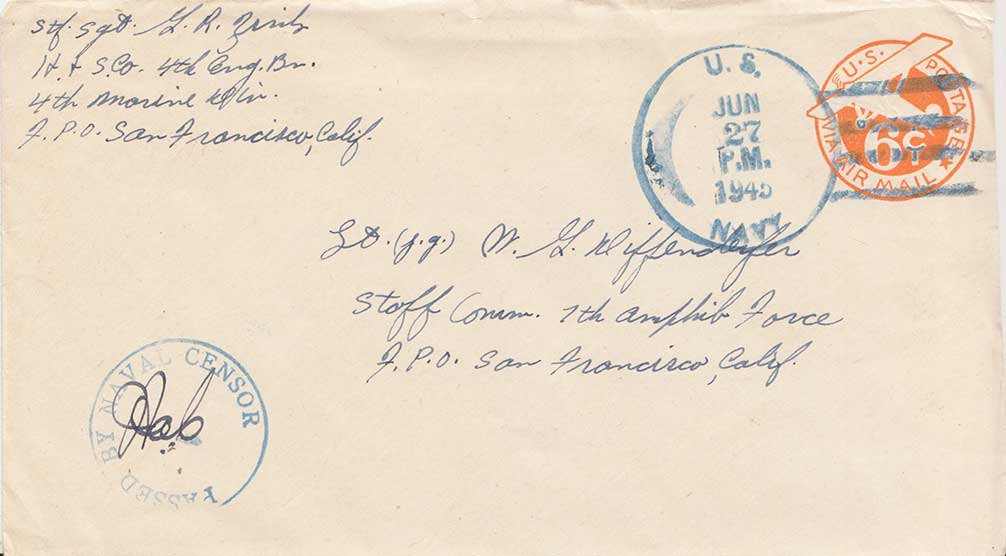 Stf. Sgt. G. R.
H. & S. Co. 4th Eng. Bn.
4th Marine Div.
F.P.O. San Francisco, Calif.
U.S.
JUN
27
P.M.
1945
NAVY
U.S. POSTAGE
6¢
VIA AIR MAIL
Lt. (j.g.) W. G. Diffenderfer
Staff Comm. 7th Amphib Force
F.P.O. San Francisco, Calif.
PASSED BY NAVAL CENSOR